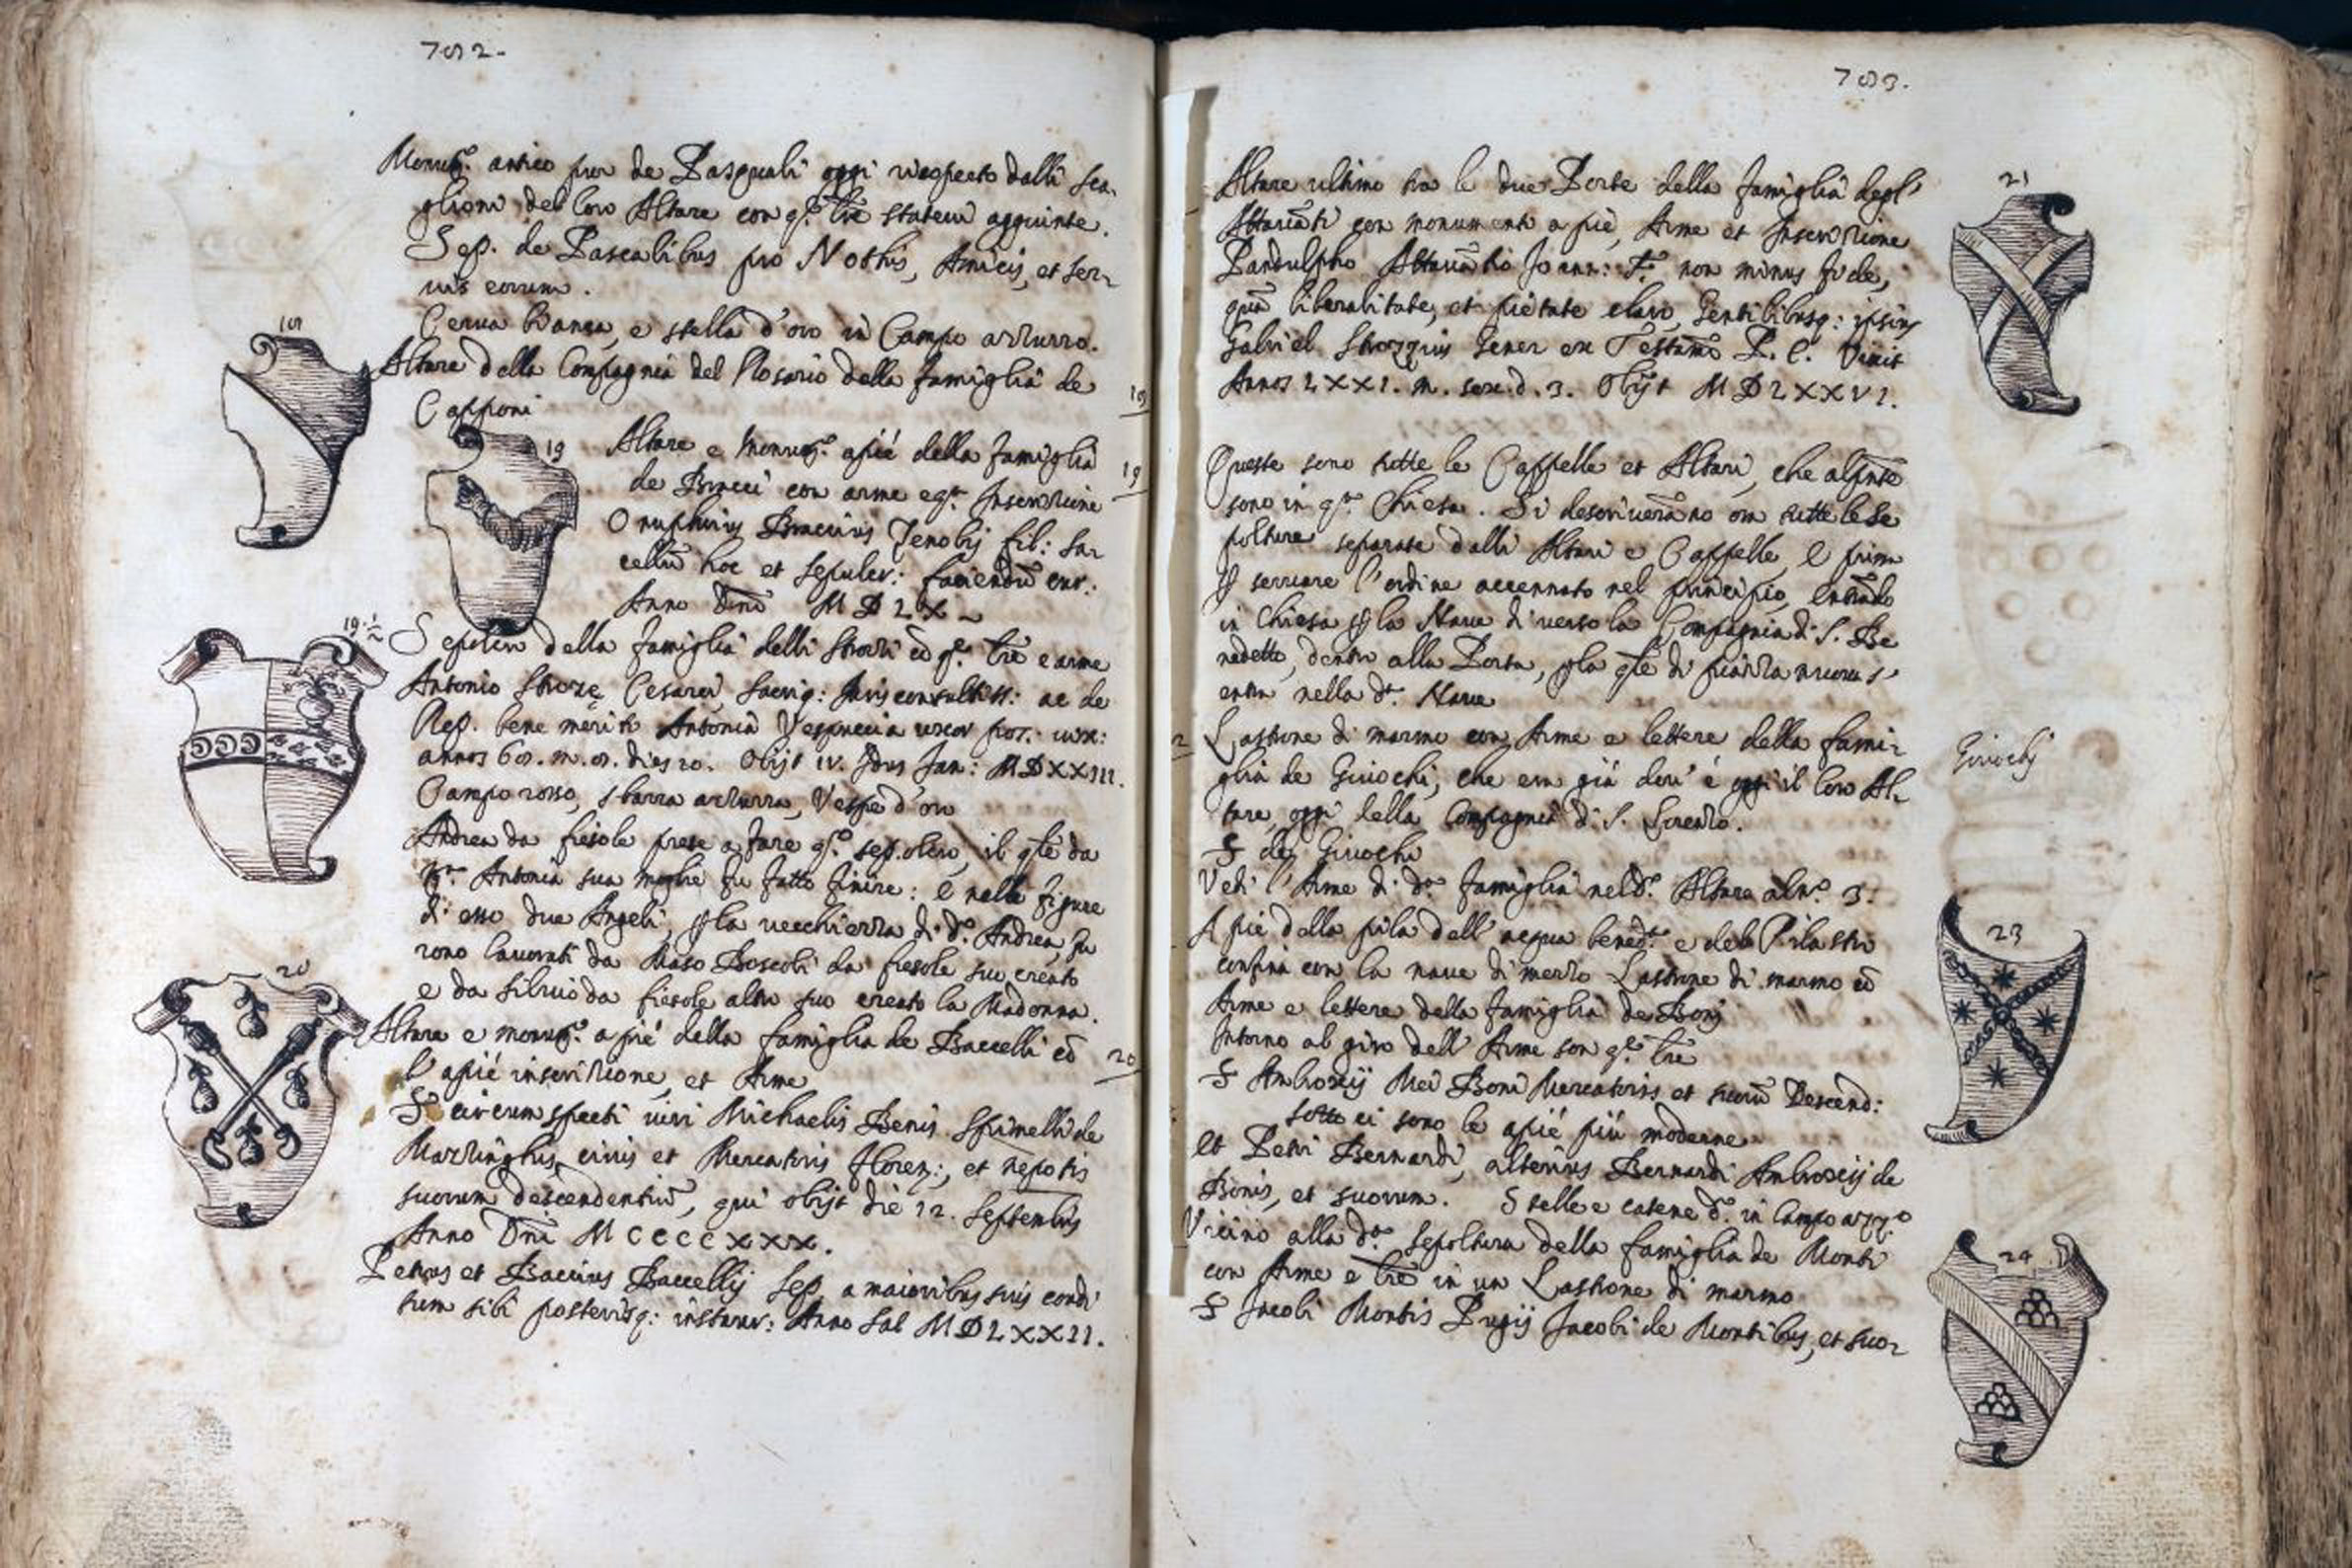 702.
Monum.to antico pur de Pasquali oggi ricoperto dalli sca-
glioni del loro Altare con q.e lre
Sep. de Pascalibus pro Nothis, Amicis, et ser-
vis eorum.
Cerva bianca, e stella d'oro in Campo azzurro.
18
Altare della Compagnia del Rosario della famiglia de
Capponi
18
19
Altare e Monum.to apiè della famiglia
19
de Bracci con arme e q.ta Inscrizione
Onuphrius Braccius Zenobij fil: sa-
cellũ hoc et sepulcr: faciendũ cur:
Anno Dñi MDLX
19 1/2
Sepolcro della famiglia delli Strozzi cõ q.e lre e arme
Antonio Strozę Cesarei sacriq: Juris consultiss: ac de
Rep. bene merito Antonia Vespuccia uxor pos: vix:
annos 68. m. 8. dies 20. Obijt IV. Idus Jan: MDXXIII.
Campo rosso, sbarra azzurra, Vespe d'oro
Andrea da fiesole prese a fare q.o sepolcro, il qle da
Antonia sua moglie fu fatto finire: e nelle figure
di esso due Angeli, p la vecchiezza di d.o Andrea, fu
rono lavorati da Maso Boscoli da fiesole suo creato
e da Silvio da fiesole altro suo creato la Madonna.
20
Altare e monum.to a piè della famiglia de Baccelli cõ
20
l'apiè inscrizione, et Arme
S. circumspecti viri Michaelis Benis Spinelli de
Mazzinghis civis et Mercatoris floren:, et nepotis
suorum descendentiũ, qui obijt die 12. Septembris
Anno Dñi MCCCCXXX.
Petrus et Baccius Baccellij Sep. a maioribus suis condi
tum sibi posterisq: instaur: Anno Sal MDLXXII.
703.
21
Altare ultimo tra le due Porte della famiglia degl'
Attaviãti con monumenti a piè, Arme et Inscrizione
Pandulpho Attaviãtio Joann: F. non minus fide,
quã liberalitate, et pietate claro, Gentilibusq: ipsius
Gabriel Strozzius Gener ex Testamõ P. C. Vixit
Annos LXXI. m. sex. d. 3. Obijt MDLXXVI.
Queste sono tutte le Cappelle et Altari, che alpñte
sono in q.ta Chiesa. Si descriverãno ora tutte le se
polture separate dalli Altari e Cappelle, e prima
p servare l'ordine accennato nel principio, Entrãdo
in Chiesa p la Nave di verso la Compagnia di S. Be
nedetto, dentro alla Porta, p la qle di piazza nuova s'
entra nella d.a Nave
Lastrone di marmo con Arme e lettere della fami-
Giuochi
glia de Giuochi, che era già dov'è oggi il loro Al-
tare, oggi della Compagnia di S. Lorenzo.
S de Giuochi
Vedi l'Arme di d.a famiglia nel d.o Altare al n.o 3.
A piè della pila dell'acqua bened.ta e del Pilastro
23
confina con la nave di mezzo Lastrone di marmo cõ
Arme e lettere della famiglia de Boni
Intorno al giro dell'Arme son q.e lre
S Ambroxij Mei Boni Mercatoris et suorũ Descend:
sotto ci sono le apiè più moderne
et Petri Bernardi, alterius Bernardi Ambroxij de
Bonis, et suorum. Stelle e catene d.o in Campo azz.o
Vicino alla d.a sepoltura della famiglia de Monti
24
con Arme e lre in un Lastrone di marmo
S Jacobi Montis Jacobi de Montibus, et suor